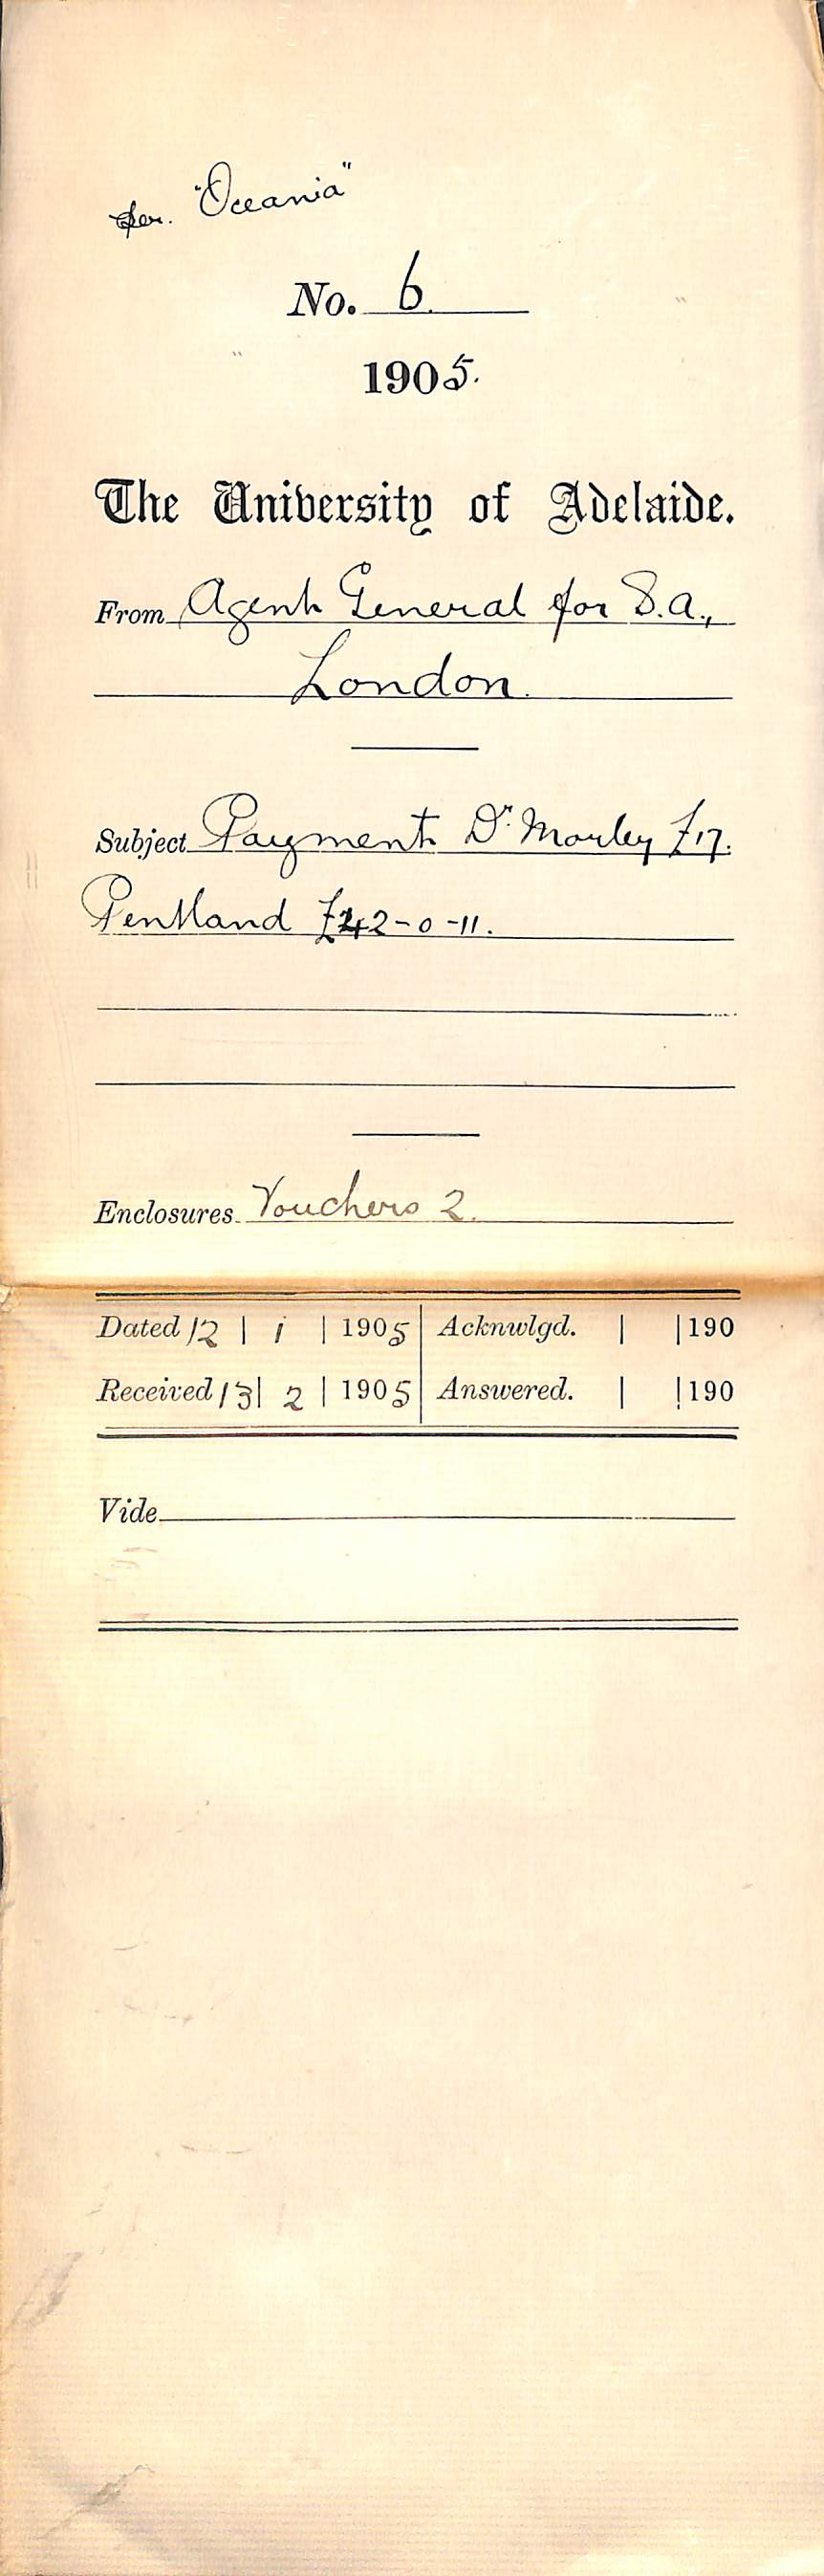 per. "Oceania"
No. 6.
1905.
The University of Adelaide.
From Agent General for S.A.,
London.
Subject Payment Dr. Morley £17.
Pentland £42-0-11.
Enclosures Vouchers 2.
Dated 12 | 1 | 1905 Acknwlgd. | | 190
Received 13 | 2 | 1905 Answered. | | 190
Vide